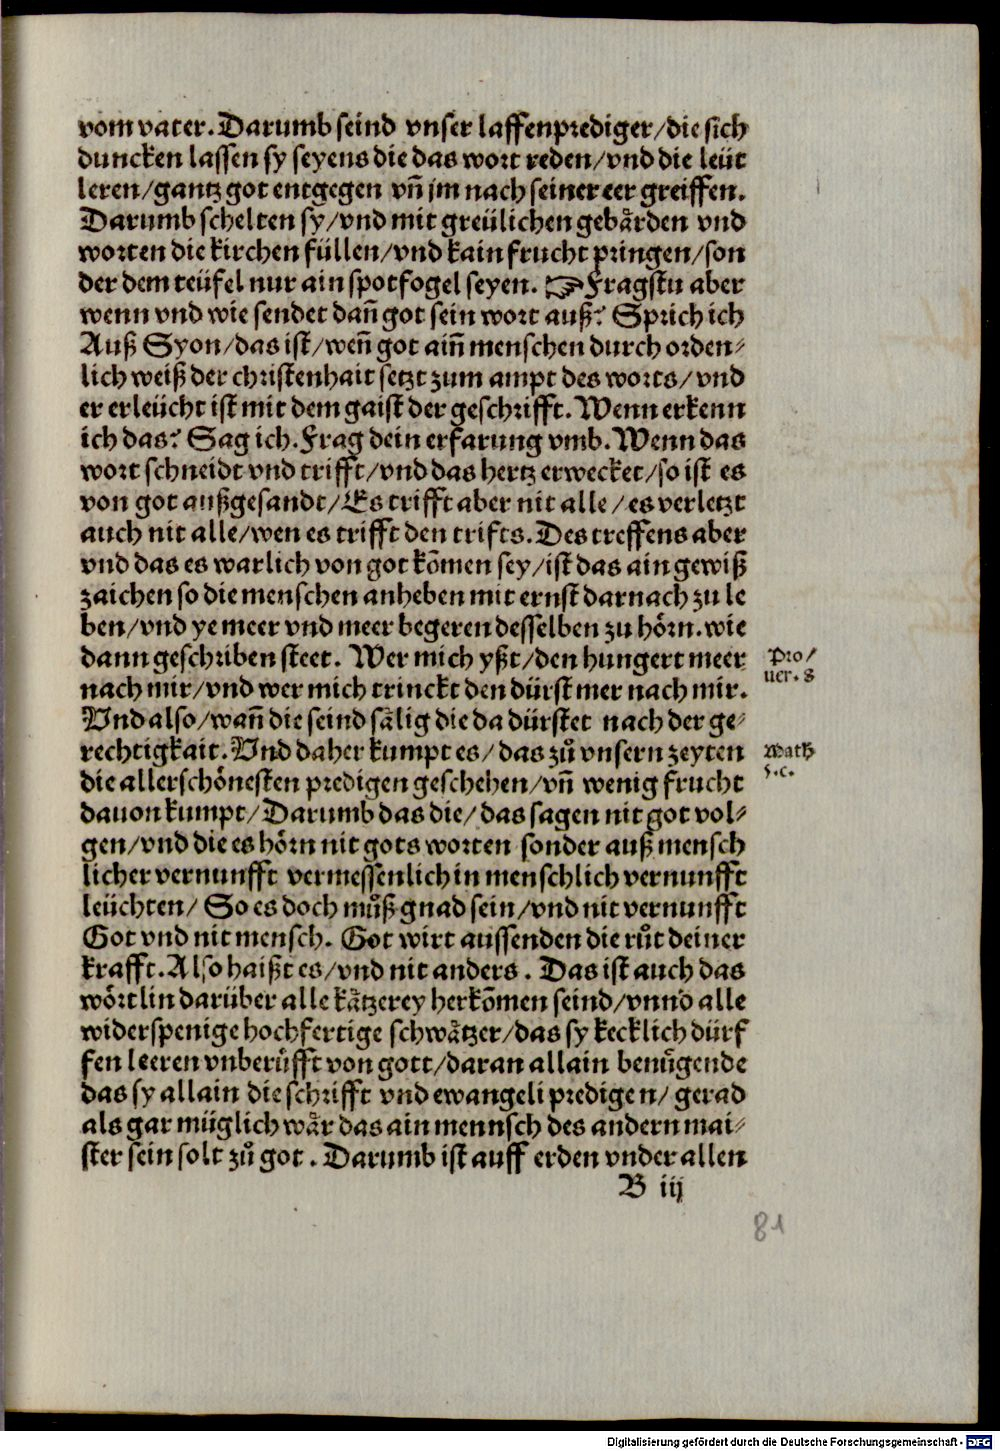 vom vater. Darumb seind vnser laffenprediger/die sich
duncken lassen sy seyens die das wort reden/vnd die leüt
leren/gantz got entgegen vn̄ jm nach seiner eer greiffen.
Darumb schelten sy/vnd mit greülichen gebaͤrden vnd
worten die kirchen füllen/vnd kain frucht pringen/son
der dem teüfel nur ain spotfogel seyen. ☞ Fragstu aber
wenn vnd wie sendet dan̄ got sein wort auß? Sprich ich
Auß Syon/das ist/wen̄ got ain̄ menschen durch orden⸗
lich weiß der christenhait setzt zum ampt des worts/vnd
er erleücht ist mit dem gaist der geschrifft. Wenn erkenn
ich das? Sag ich. Frag dein erfarung vmb. Wenn das
wort schneidt vnd trifft/vnd das hertz erwecket/so ist es
von got außgesandt/Es trifft aber nit alle/es verletzt
auch nit alle/wen es trifft den trifts. Des treffens aber
vnd das es warlich von got kōmen sey/ist das ain gewiß
zaichen so die menschen anheben mit ernst darnach zu le
ben/vnd ye meer vnd meer begeren desselben zu hoͤrn. wie
dann geschriben steet. Wer mich yßt/den hungert meer
Pro/
uer. 8
nach mir/vnd wer mich trinckt den dürst mer nach mir.
Vnd also/wan̄ die seind saͤlig die da dürstet nach der ge⸗
rechtigkait. Vnd daher kumpt es/das zuͦ vnsern zeyten
Math
5.c.
die allerschoͤnesten predigen geschehen/vn̄ wenig frucht
dauon kumpt/Darumb das die/das sagen nit got vol⸗
gen/vnd die es hoͤrn nit gots worten sonder auß mensch
licher vernunfft vermessenlich in menschlich vernunfft
leüchten/ So es doch muͦß gnad sein/vnd nit vernunfft
Got vnd nit mensch. Got wirt aussenden die ruͦt deiner
krafft. Also haißt es/vnd nit anders. Das ist auch das
woͤrtlin darüber alle kaͤtzerey herkōmen seind/vnnd alle
widerspenige hochfertige schwaͤtzer/das sy kecklich dürf
fen leeren vnberuͤfft von gott/daran allain benuͤgende
das sy allain die schrifft vnd ewangeli predigen/ gerad
als gar müglich waͤr das ain mennsch des andern mai⸗
ster sein solt zuͦ got. Darumb ist auff erden vnder allen
B iij
81
Digitalisierung gefördert durch die Deutsche Forschungsgemeinschaft - DFG